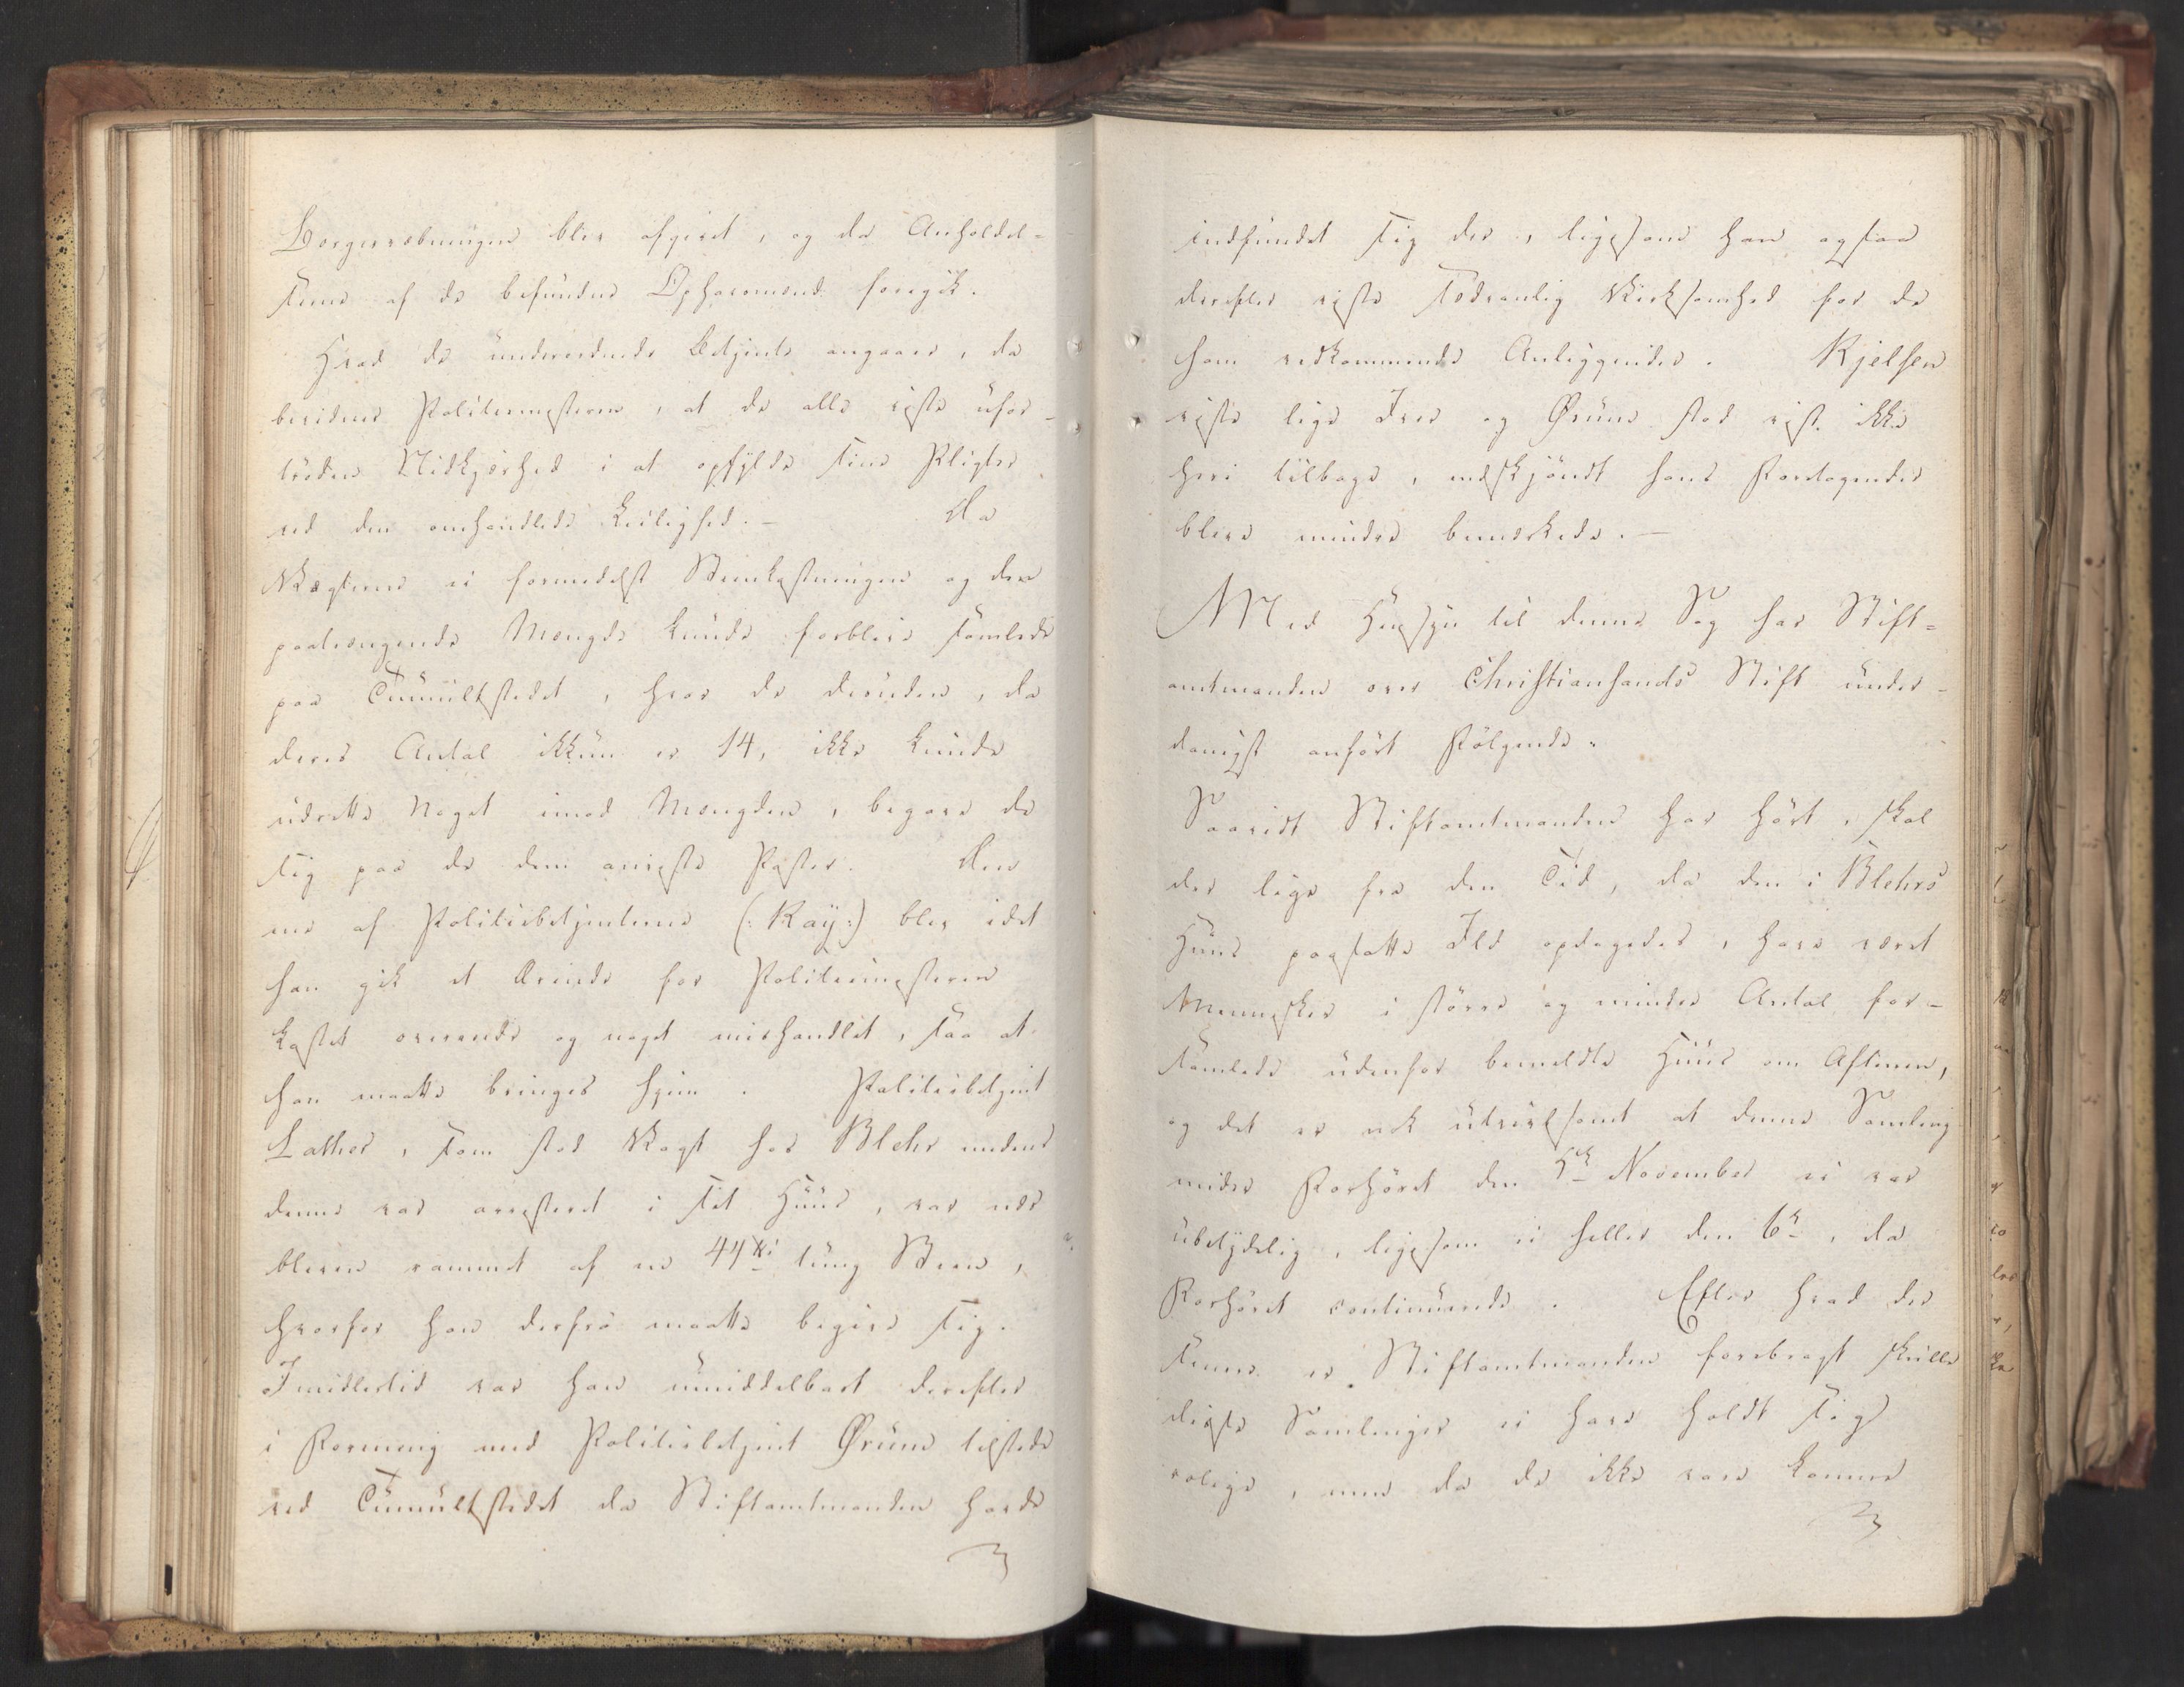 Borgervæbningen blev afgivet, og da Anholdel-
serne af de befundne Ophavsmænd foregik.
Hvad de underordnede Betjente angaaer, da
bevidner Politiemesteren, at de alle viste ufor-
tröden Nidkjærhed i at opfylde sine Pligter
ved den omhandlede Leilighed. – Da
Vægterne ei formedelst Steenkastningen og den
paatrængende Mængde kunde forblive samlede
paa Tumultstedet, hvor de desuden, da
deres Antal ikkun er 14, ikke kunde
udrette Noget imod Mængden, begave de
sig paa de dem anviste Poster. Den
ene af Politiebetjentene (: Kay :) blev idet
han gik et Ærinde for Politiemesteren
kastet overende og noget mishandlet, saa at
han maatte bringes hjem. Politiebetjent
Lather, som stod Vagt hos Blehr medens
denne var arresteret i sit Huus, var nær
bleven rammet af en 44 tung Steen,
hvorfor han derfra maatte begive sig.
Imidlertid var han umiddelbart derefter
i Forening med Politiebetjent Grune tilstede
ved Tumultstedet da Stiftamtmanden havde
indfundet sig der, ligesom han ogsaa
derefter viste sædvanlig Virksomhed for de
ham vedkommende Anliggender. Kjelsen
viste lige Iver og Grune stod vist ikke
heri tilbage, endskjöndt hans Foretagender
bleve mindre bemærkede. –
Med Hensyn til denne Sag har Stift-
amtmanden over Christiansands Stift under-
danigst anfört Fölgende:
Saavidt Stiftamtmanden har hört, skal
der lige fra den Tid, da den i Blehrs
Huus paasatte Ild opdagedes, have været
Mennesker i större og mindre Antal for-
samlede udenfor bemeldte Huus om Aftenen,
og det er nok utvivlsomt at denne Samling
under Forhöret den 5te November ei var
ubetydelig, ligesom ei heller den 6te, da
Forhöret continuerede. Efter hvad der
senere er Stiftamtmanden forebragt skulle
disse Samlinger ei have holdt sig
rolige, men da de ikke vare komne